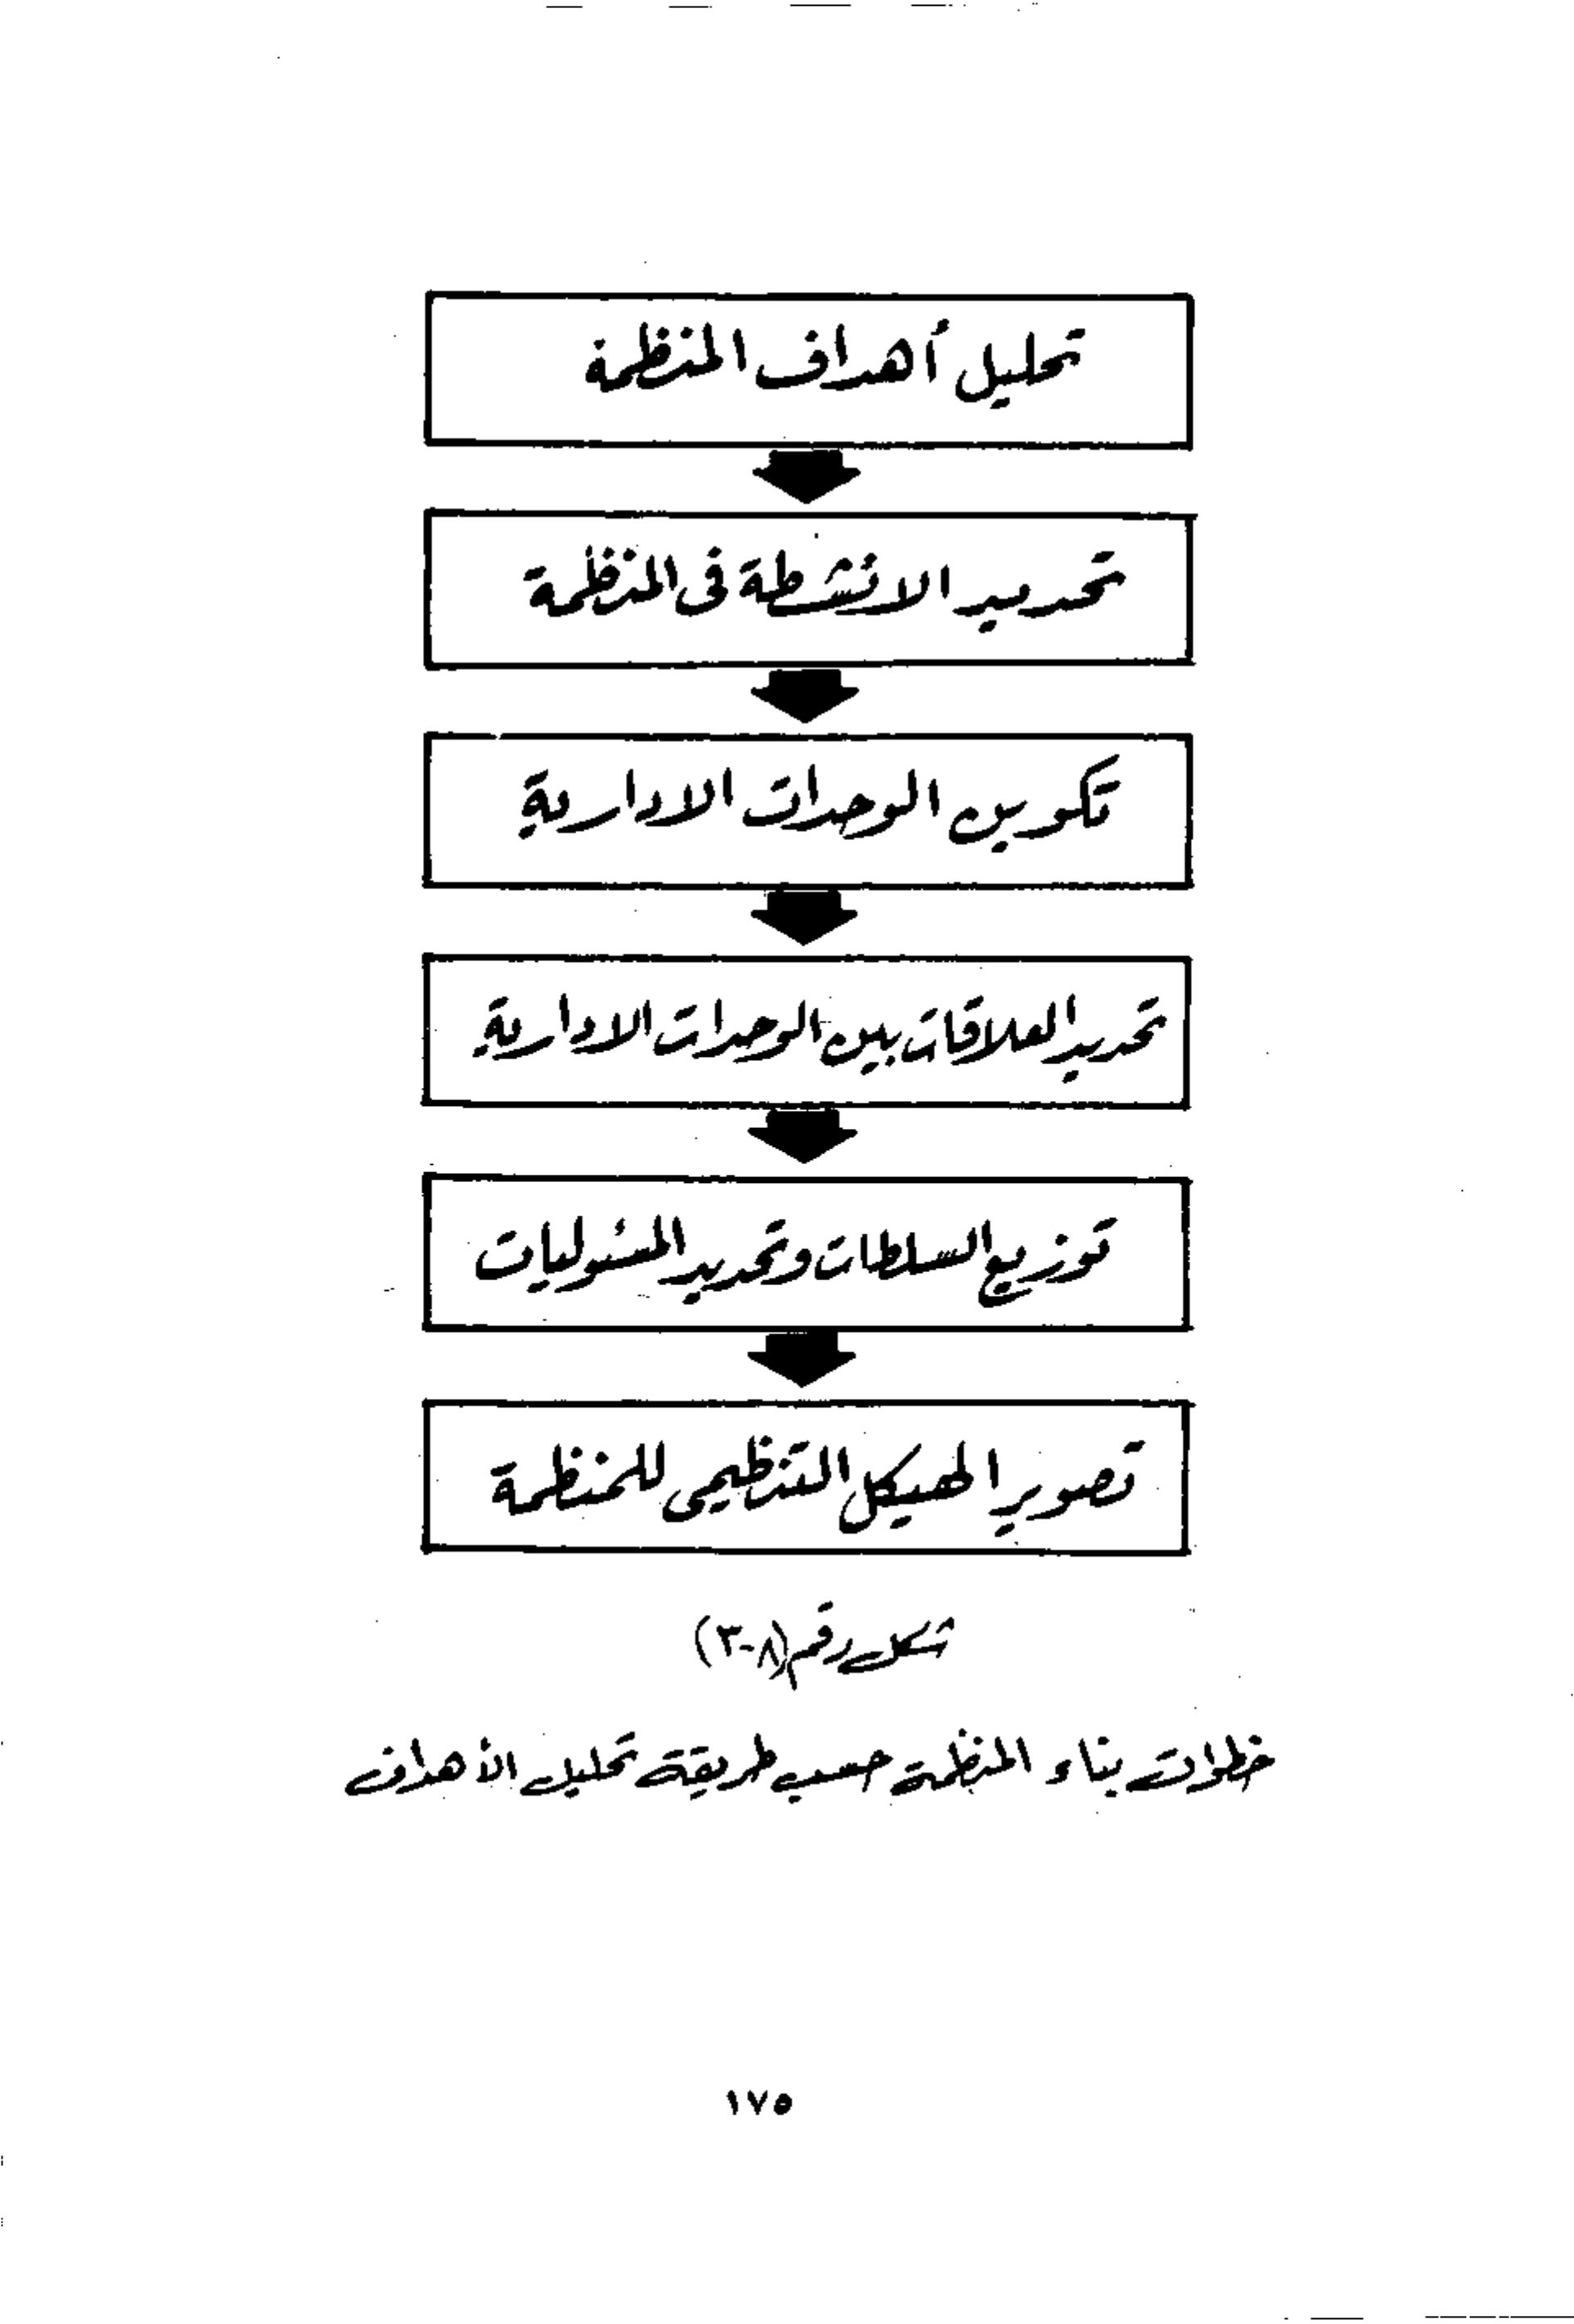 تحليل أهداف المنظمة
تحديد الانشطة فى المنظمة
تكوين الوحدات الادارية
تحديد العلاقات بين الوحدات الادارية
توزيع السلطات وتحديد المسئوليات
تصوير الهيكل التنظيمى للمنظمة
شكل رقم (٨-٣)
خطوات بناء المنظمة حسب طريقة تحليل الأهداف
١٧٥